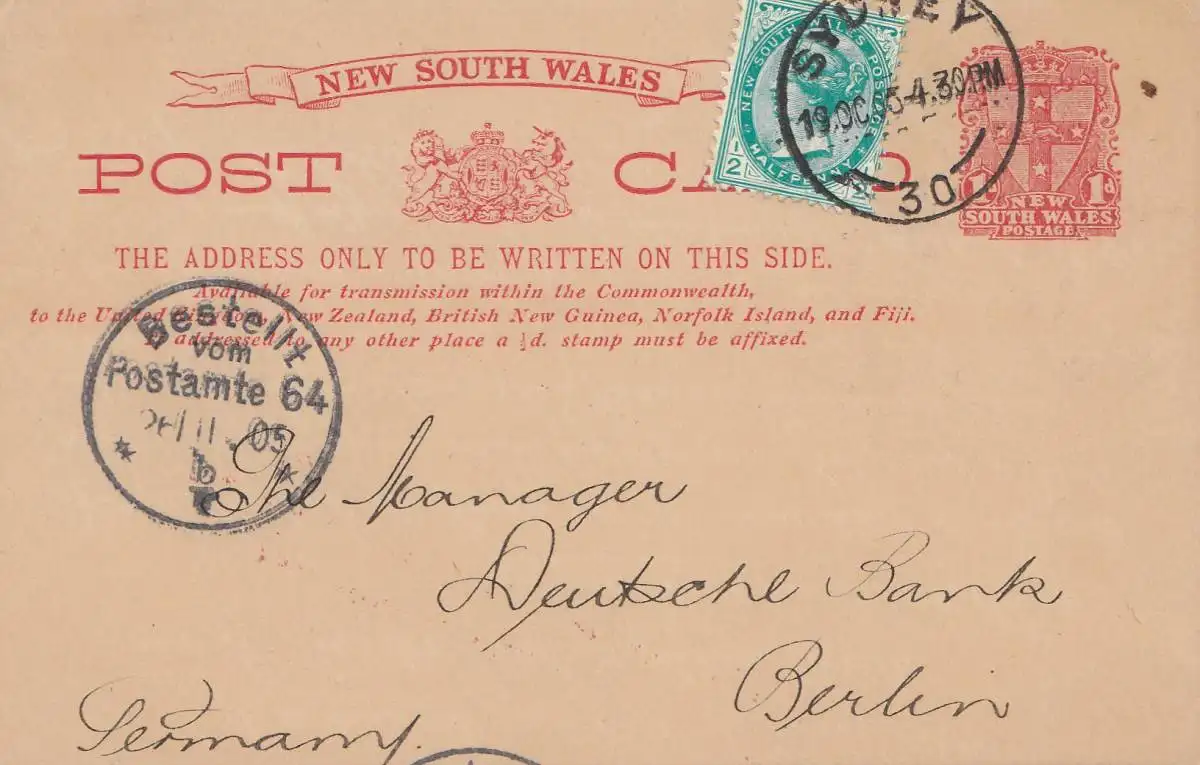 NEW SOUTH WALES
POST CARD
NEW SOUTH WALES POSTAGE
HALFPENNY
1/2
SYDNEY
19.OC.05-4.30.PM
30
1d 1d
NEW
SOUTH WALES
POSTAGE
THE ADDRESS ONLY TO BE WRITTEN ON THIS SIDE.
Available for transmission within the Commonwealth,
to the United Kingdom, New Zealand, British New Guinea, Norfolk Island, and Fiji.
If addressed to any other place a ½d. stamp must be affixed.
Bestellt
vom
Postamte 64
11.05
b
The Manager
Deutsche Bank
Berlin
Germany.